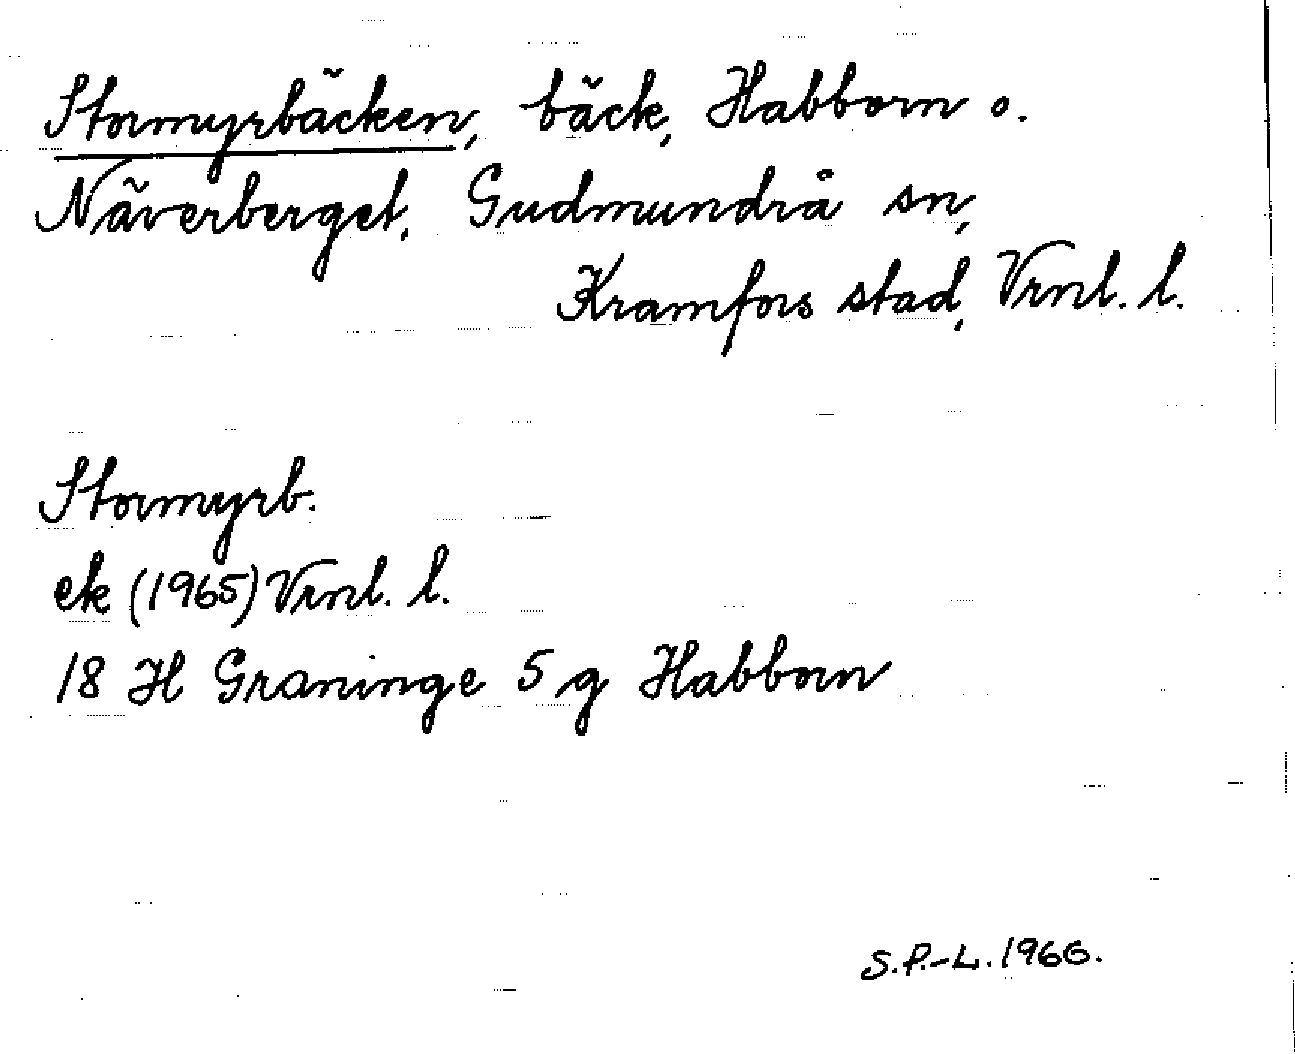 Stormyrbäcken, bäck, Habborn o.
Näverberget, Gudmundrå sn,
Kramfors stad, Vrnl. l.
Stormyrb.
ek (1965) Vrnl. l.
18 H Graninge 5 g Habborn
S.P.-L. 1966.